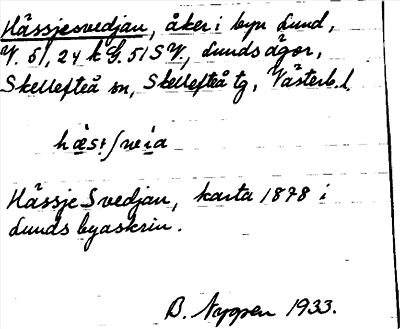 Hässjesvedjan, åker i byn Lund,
V. 51, 24 k G. 51 SV, Lunds ägor,
Skellefteå sn, Skellefteå tg, Västerb. l.
Hässje Svedjan, karta 1878 i
Lunds byaskrin.
B. Nygren 1933.